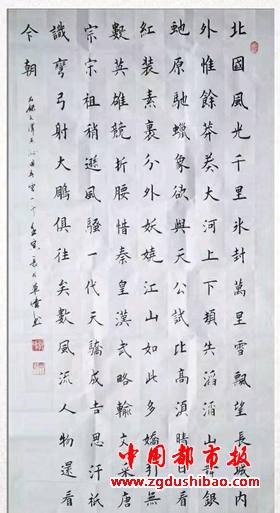 北國風光千里冰封萬里雪飄望長城内
外惟餘莽莽大河上下頓失滔滔山舞銀
虵原馳蠟象欲與天公試比高須晴日看
紅裝素裹分外妖嬈江山如此多嬌引無
數英雄競折腰惜秦皇漢武略輸文采唐
宗宋祖稍遜風騷一代天驕成吉思汗祇
識彎弓射大鵰俱往矣數風流人物還看
今朝
中國都市報
www.zgdushibao.com